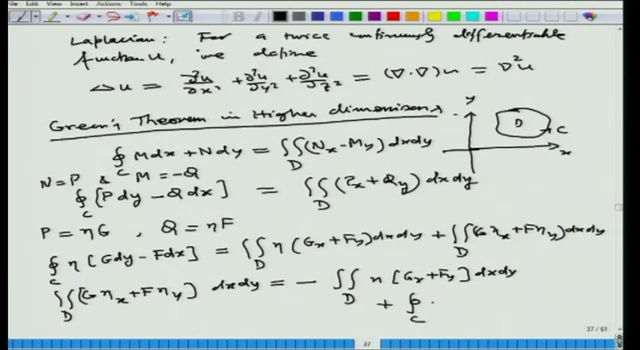 File Edit View Insert Actions Tools Help
Laplacian: For a twice continuously differentiable
function u, we define
Δu = ∂²u/∂x² + ∂²u/∂y² + ∂²u/∂z² = (∇·∇)u = ∇²u
Green's Theorem in Higher dimensions
y
D
C
x
∮_C Mdx + Ndy = ∬_D (N_x - M_y) dxdy
N = P & M = -Q
∮_C [Pdy - Qdx] = ∬_D (P_x + Q_y) dxdy
P = ηG , Q = ηF
∮_C η[Gdy - Fdx] = ∬_D η(G_x + F_y) dxdy + ∬_D (Gη_x + Fη_y) dxdy
∬_D [Gη_x + Fη_y] dxdy = - ∬_D η[G_x + F_y] dxdy
+ ∮_C
37 / 61
37